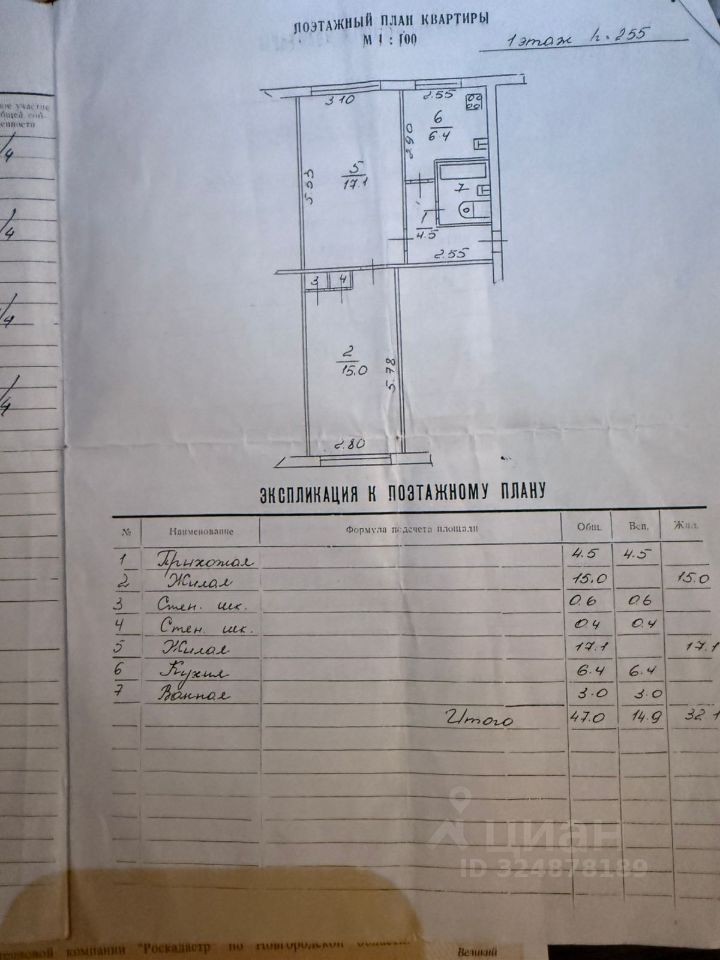 ПОЭТАЖНЫЙ ПЛАН КВАРТИРЫ
М 1 : 100
1 этаж h. 255
ное участие
общей соб-
енности
/4
/4
/4
/4
3.10
2.55
6
6.4
2.90
5
17.1
5.53
7
1
4.5
2.55
3
4
2
15.0
5.78
2.80
ЭКСПЛИКАЦИЯ К ПОЭТАЖНОМУ ПЛАНУ
№ Наименование Формула подсчета площади Общ. Всп. Жил.
1 Прихожая 4.5 4.5
2 Жилая 15.0 15.0
3 Стен. шк. 0.6 0.6
4 Стен. шк. 0.4 0.4
5 Жилая 17.1 17.1
6 Кухня 6.4 6.4
7 Ванная 3.0 3.0
Итого 47.0 14.9 32.1
циан
ID 324878189
компании "Роскадастр" по Новгородской области
Великий